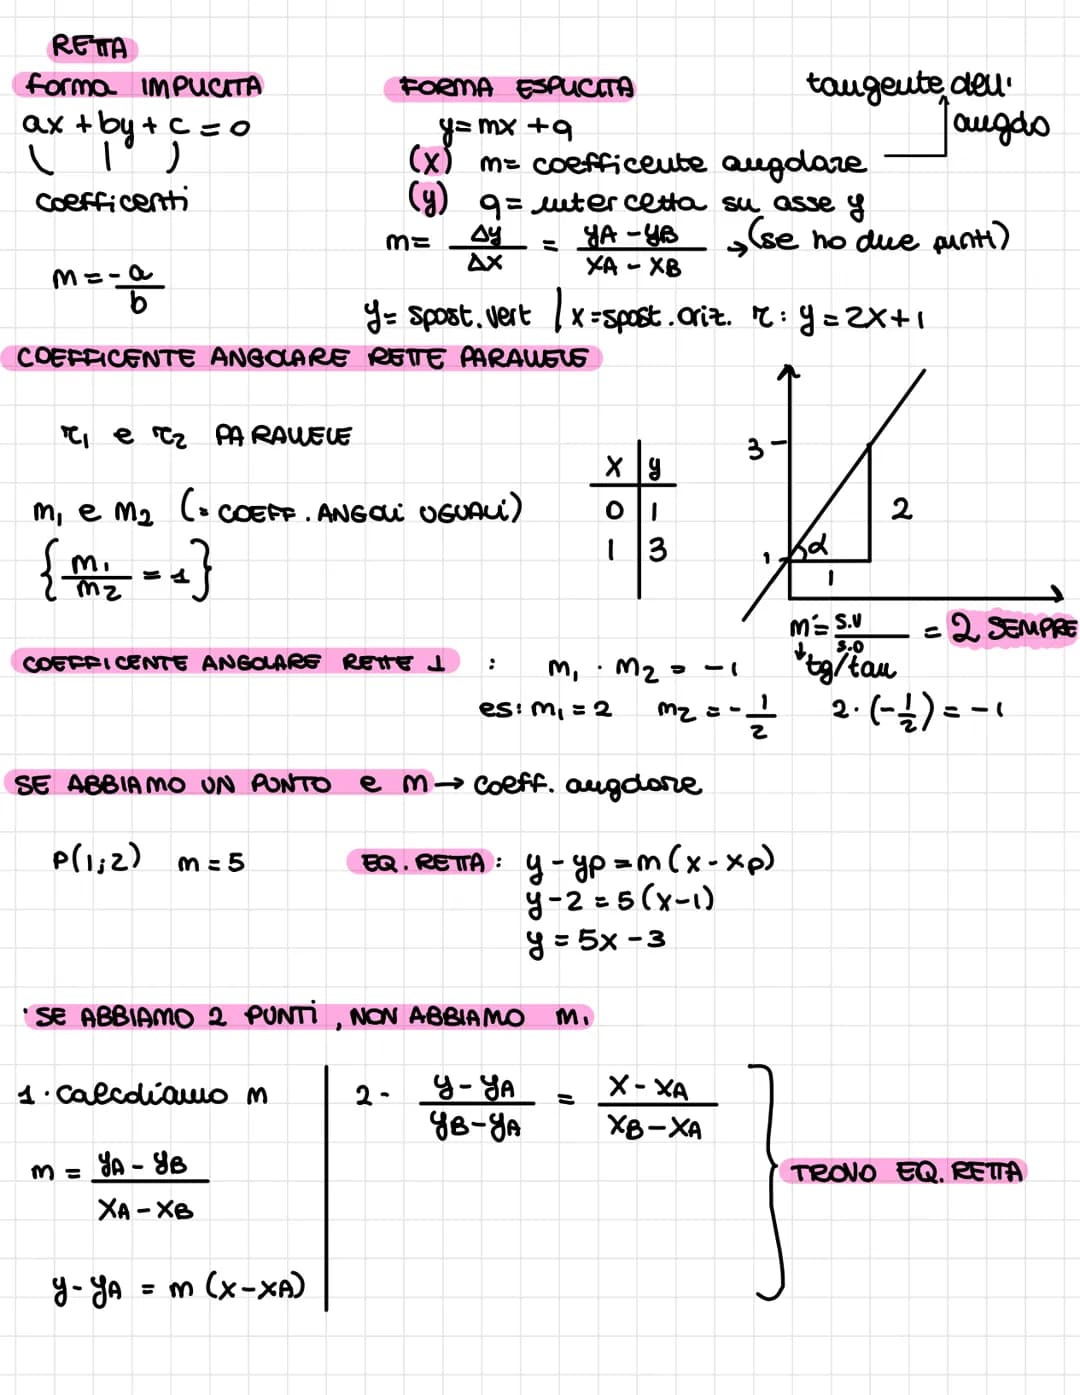 RETTA
forma IMPLICITA
ax + by + c = 0
coefficenti
m = - a/b
FORMA ESPLICITA
y = mx + q
(x) m = coefficente angolare
tangente dell'
angolo
(y) q = intercetta su asse y
m = Δy/Δx = yA - yB / xA - xB → (se ho due punti)
y = spost. vert | x = spost. oriz. r: y = 2x + 1
COEFFICENTE ANGOLARE RETTE PARALLELE
r1 e r2 PARALLELE
m1 e m2 (= COEFF. ANGOLI UGUALI)
{ m1/m2 = 1 }
x | y
0 | 1
1 | 3
3
2
1 α
1
m = s.v/s.o = 2 SEMPRE
tg/tan
COEFFICENTE ANGOLARE RETTE ⊥ : m1 · m2 = -1
es: m1 = 2 m2 = - 1/2 2 · (- 1/2) = -1
SE ABBIAMO UN PUNTO e m → coeff. angolare
P(1;2) m = 5
EQ. RETTA: y - yp = m (x - xp)
y - 2 = 5 (x - 1)
y = 5x - 3
· SE ABBIAMO 2 PUNTI, NON ABBIAMO m.
1 · calcoliamo m
m = yA - yB / xA - xB
y - yA = m (x - xA)
2 - y - yA / yB - yA = x - xA / xB - xA
TROVO EQ. RETTA